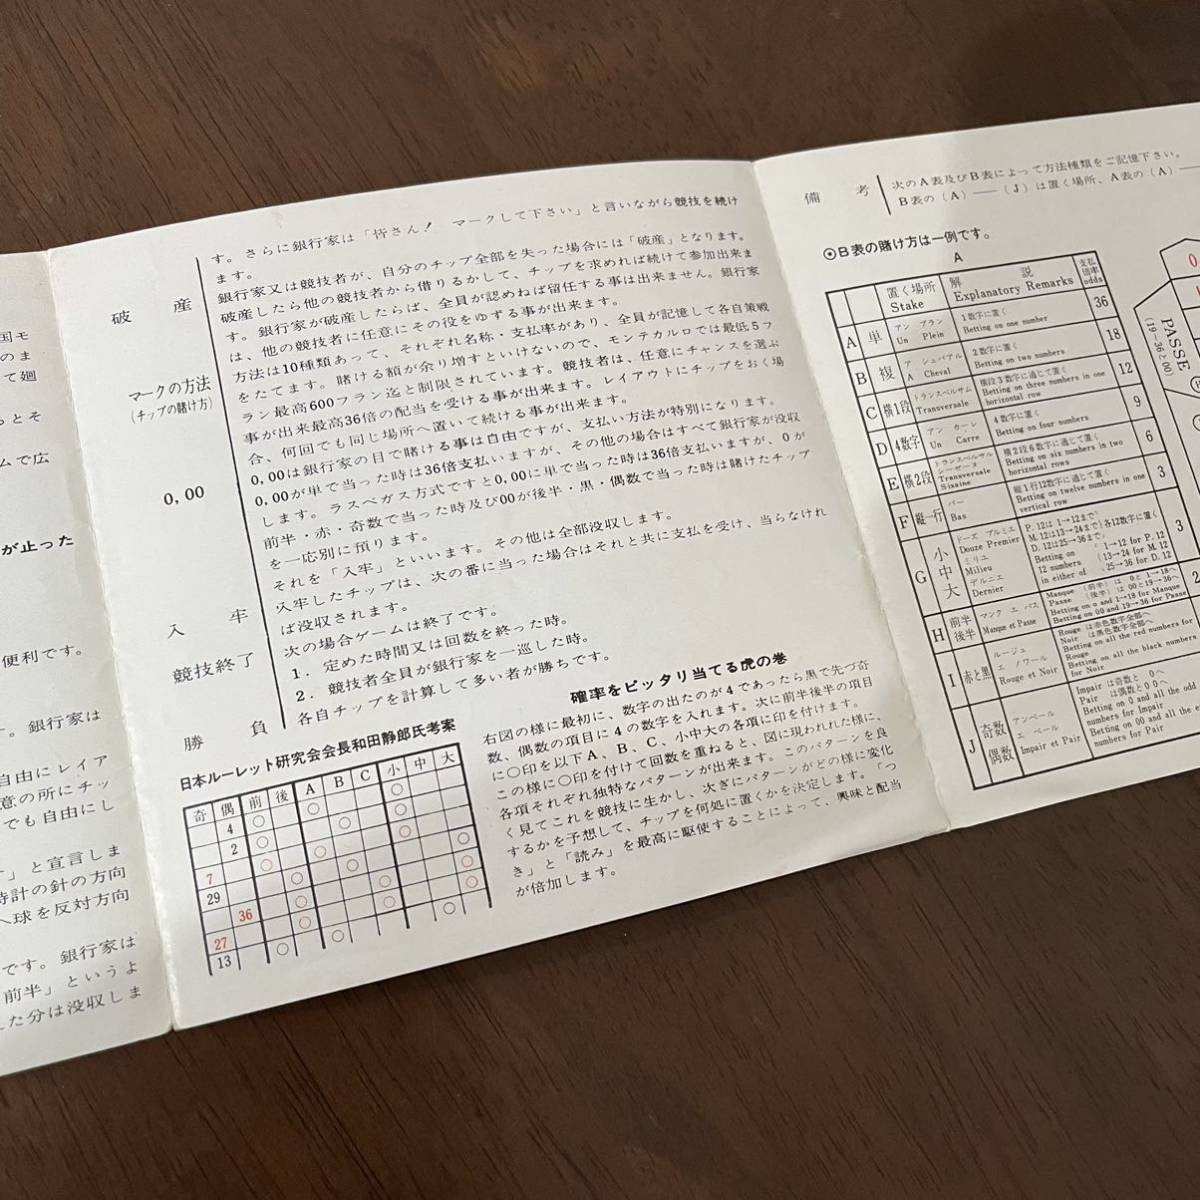 国モ
のま
て廻
らとそ
ムで広
が止った
便利です。
銀行家は
自由にレイア
意の所にチッ
でも自由にし
」と宣言しま
時計の針の方向
へ球を反対方向
です。銀行家は
前半」というよ
した分は没収しま
す。さらに銀行家は「皆さん！ マークして下さい」と言いながら競技を続け
ます。
破産
銀行家又は競技者が、自分のチップ全部を失った場合には「破産」となります。
破産したら他の競技者から借りるかして、チップを求めれば続けて参加出来ま
す。銀行家が破産したらば、全員が認めねば留任する事は出来ません。銀行家
は、他の競技者に任意にその役をゆずる事が出来ます。
マークの方法
(チップの賭け方)
方法は10種類あって、それぞれ名称・支払率があり、全員が記憶して各自策戦
をたてます。賭ける額が余り増すといけないので、モンテカルロでは最低5フ
ラン最高600フラン迄と制限されています。競技者は、任意にチャンスを選ぶ
事が出来最高36倍の配当を受ける事が出来ます。レイアウトにチップをおく場
合、何回でも同じ場所へ置いて続ける事が出来ます。
0,00
0,00は銀行家の目で賭ける事は自由ですが、支払い方法が特別になります。
0,00が単で当った時は36倍支払いますが、その他の場合はすべて銀行家が没収
します。ラスベガス方式ですと0,00に単で当った時は36倍支払いますが、0が
前半・赤・奇数で当った時及び00が後半・黒・偶数で当った時は賭けたチップ
を一応別に預ります。
入牢
それを「入牢」といいます。その他は全部没収します。
入牢したチップは、次の番に当った場合はそれと共に支払を受け、当らなけれ
ば没収されます。
競技終了
次の場合ゲームは終了です。
1. 定めた時間又は回数を終った時。
2. 競技者全員が銀行家を一巡した時。
勝負
各自チップを計算して多い者が勝ちです。
日本ルーレット研究会会長和田静郎氏考案
奇 偶 前 後 A B C 小 中 大
4 ○ ○ ○
2 ○ ○ ○
7 ○ ○ ○
29 ○ ○ ○
36 ○ ○ ○
27 ○ ○ ○
13 ○ ○ ○
確率をピッタリ当てる虎の巻
右図の様に最初に、数字の出たのが4であったら黒で先づ奇
数、偶数の項目に4の数字を入れます。次に前半後半の項目
に○印を以下A、B、C、小中大の各項に印を付けます。
この様に○印を付けて回数を重ねると、図に現われた様に、
各項それぞれ独特なパターンが出来ます。このパターンを良
く見てこれを競技に生かし、次ぎにパターンがどの様に変化
するかを予想して、チップを何処に置くかを決定します。「つ
き」と「読み」を最高に駆使することによって、興味と配当
が倍加します。
備考
次のA表及びB表によって方法種類をご記憶下さい。
B表の(A)——(J)は置く場所、A表の(A)—
⊙B表の賭け方は一例です。
A
置く場所 Stake 解説 Explanatory Remarks 支払倍率 odds
A 単 アン プラン Un Plein 1数字に置く Betting on one number 36
B 複 ア シュバアル A Cheval 2数字に置く Betting on two numbers 18
C 横1段 トランスベルサム Transversale 横段3数字に通じて置く Betting on three numbers in one horizontal row 12
D 4数字 アン カーレ Un Carre 4数字に置く Betting on four numbers 9
E 横2段 トランスベルサル シーゼーヌ Transversale Sixaine 横2段6数字に通じて置く Betting on six numbers in two horizontal rows 6
F 縦一行 バー Bas 縦1行12数字に通じて置く Betting on twelve numbers in one vertical row 3
G 小中大 ドーズ プルミエ Douze Premier ミリエ Milieu デルニエ Dernier P. 12は1→12まで M. 12は13→24まで D. 12は25→36まで 各12数字に置く Betting on 12 numbers in either of 1→12 for P. 12 13→24 for M. 12 25→36 for D. 12 3
H 前半 後半 マンク エ パス Manque et Passe Manque (前半) は 0と1→18へ Passe (後半) は 00と19→36へ Betting on o and 1→18 for Manque Betting on 00 and 19→36 for Passe 2
I 赤と黒 ルージュ エ ノワール Rouge et Noir Rouge は赤色数字全部へ Noir は黒色数字全部へ Betting on all the red numbers for Rouge Betting on all the black numbers for Noir
J 奇数 偶数 アンペール エ ペール Impair et Pair Impair は奇数と 0へ Pair は偶数と00へ Betting on 0 and all the odd numbers for Impair Betting on 00 and all the e numbers for Pair
PASSE
(19→36と00)
0